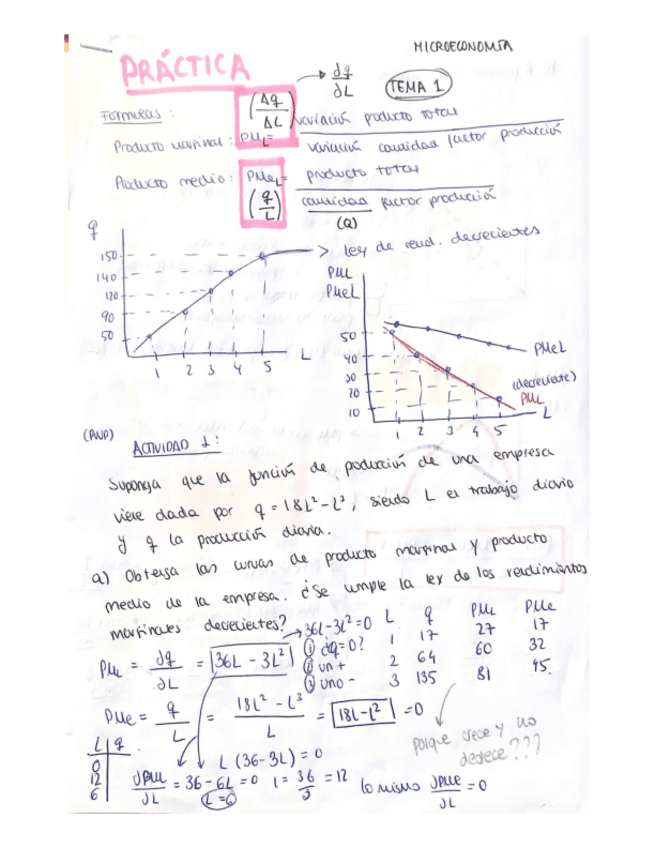 MICROECONOMÍA
PRÁCTICA
TEMA 1
∂q/∂L
Formulas:
Producto marginal: PML = (Δq/ΔL) variación producto total / variación cantidad factor producción
Producto medio: PMeL = (q/L) producto total / cantidad factor producción
(Q)
q
150
140
120
90
50
1 2 3 4 5 L
> ley de rend. decrecientes
PML
PMeL
50
40
30
20
10
1 2 3 4 5 L
PMeL
(decreciente)
PML
ACTIVIDAD 1:
Suponga que la función de producción de una empresa
viene dada por q = 18L² - L³, siendo L el trabajo diario
y q la producción diaria.
a) Obtenga las curvas de producto marginal y producto
medio de la empresa. ¿Se cumple la ley de los rendimientos
marginales decrecientes?
36L - 3L² = 0
① dq = 0?
② un +
③ uno -
L q PML PMe
1 17 27 17
2 64 60 32
3 135 81 45
PML = ∂q/∂L = 36L - 3L²
PMe = q/L = 18L² - L³/L = 18L - L² = 0
porque crece y no
decrece???
L q
0
12
6
L (36 - 3L) = 0
∂PML/∂L = 36 - 6L = 0
L = 6
L = 36/3 = 12
lo mismo ∂PMe/∂L = 0